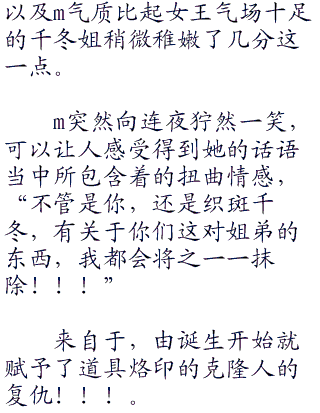 以及m气质比起女王气场十足
的千冬姐稍微稚嫩了几分这
一点。
m突然向连夜狞然一笑，
可以让人感受得到她的话语
当中所包含着的扭曲情感，
“不管是你，还是织斑千
冬，有关于你们这对姐弟的
东西，我都会将之一一抹
除！！！”
来自于，由诞生开始就
赋予了道具烙印的克隆人的
复仇！！！。